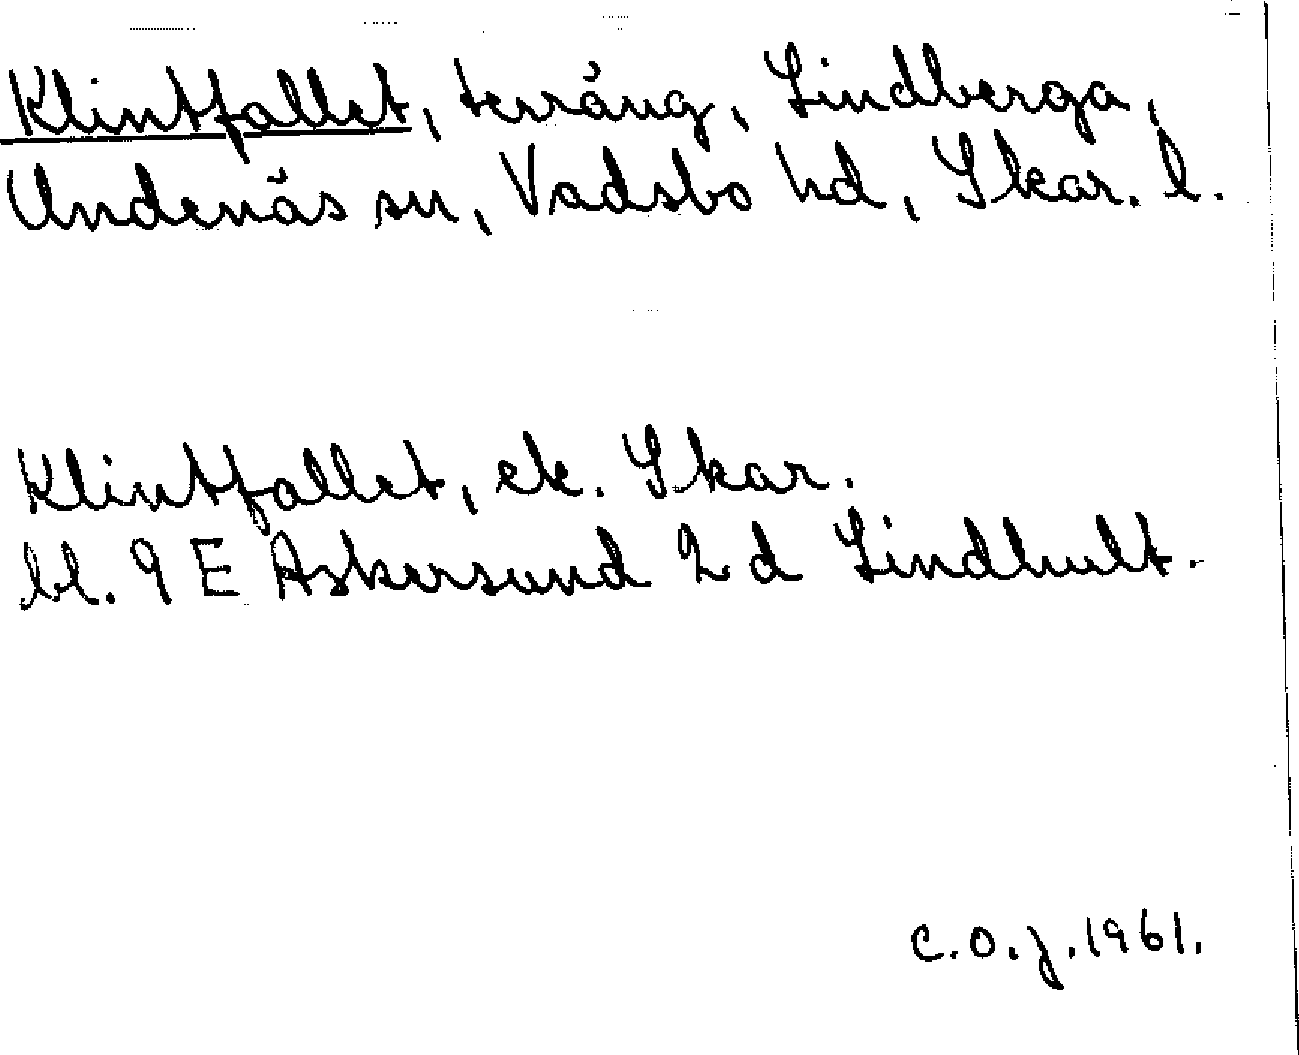 Klintfallet, terräng, Lindberga,
Undenäs sn, Vadsbo hd, Skar. l.
Klintfallet, ek. Skar.
bl. 9 E Askersund 2 d Lindhult.
C.O.J. 1961.